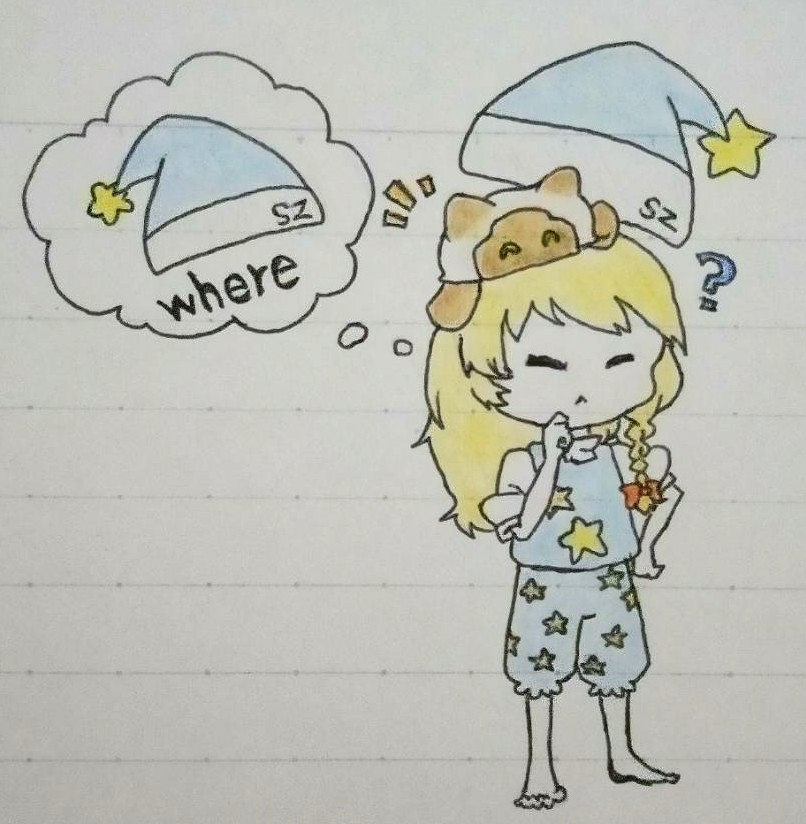 SZ
where
SZ
?